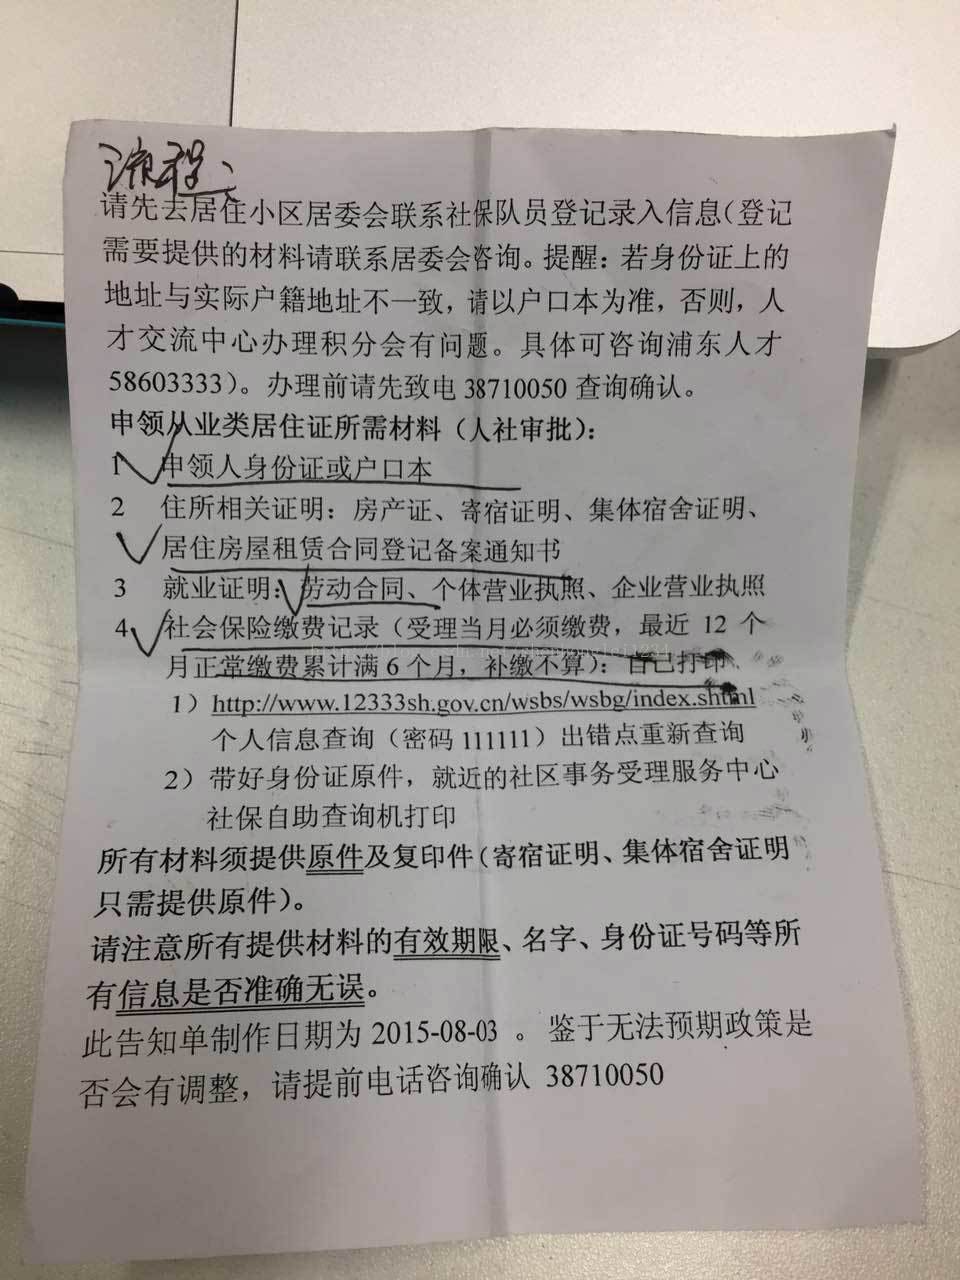 流程：
请先去居住小区居委会联系社保队员登记录入信息（登记
需要提供的材料请联系居委会咨询。提醒：若身份证上的
地址与实际户籍地址不一致，请以户口本为准，否则，人
才交流中心办理积分会有问题。具体可咨询浦东人才
58603333）。办理前请先致电 38710050 查询确认。
申领从业类居住证所需材料（人社审批）：
1 申领人身份证或户口本
2 住所相关证明：房产证、寄宿证明、集体宿舍证明、
居住房屋租赁合同登记备案通知书
3 就业证明：劳动合同、个体营业执照、企业营业执照
4 社会保险缴费记录（受理当月必须缴费，最近 12 个
月正常缴费累计满 6 个月，补缴不算）：自己打印
1）http://www.12333sh.gov.cn/wsbs/wsbg/index.shtml
个人信息查询（密码 111111）出错点重新查询
2）带好身份证原件，就近的社区事务受理服务中心
社保自助查询机打印
所有材料须提供原件及复印件（寄宿证明、集体宿舍证明
只需提供原件）。
请注意所有提供材料的有效期限、名字、身份证号码等所
有信息是否准确无误。
此告知单制作日期为 2015-08-03 。鉴于无法预期政策是
否会有调整，请提前电话咨询确认 38710050